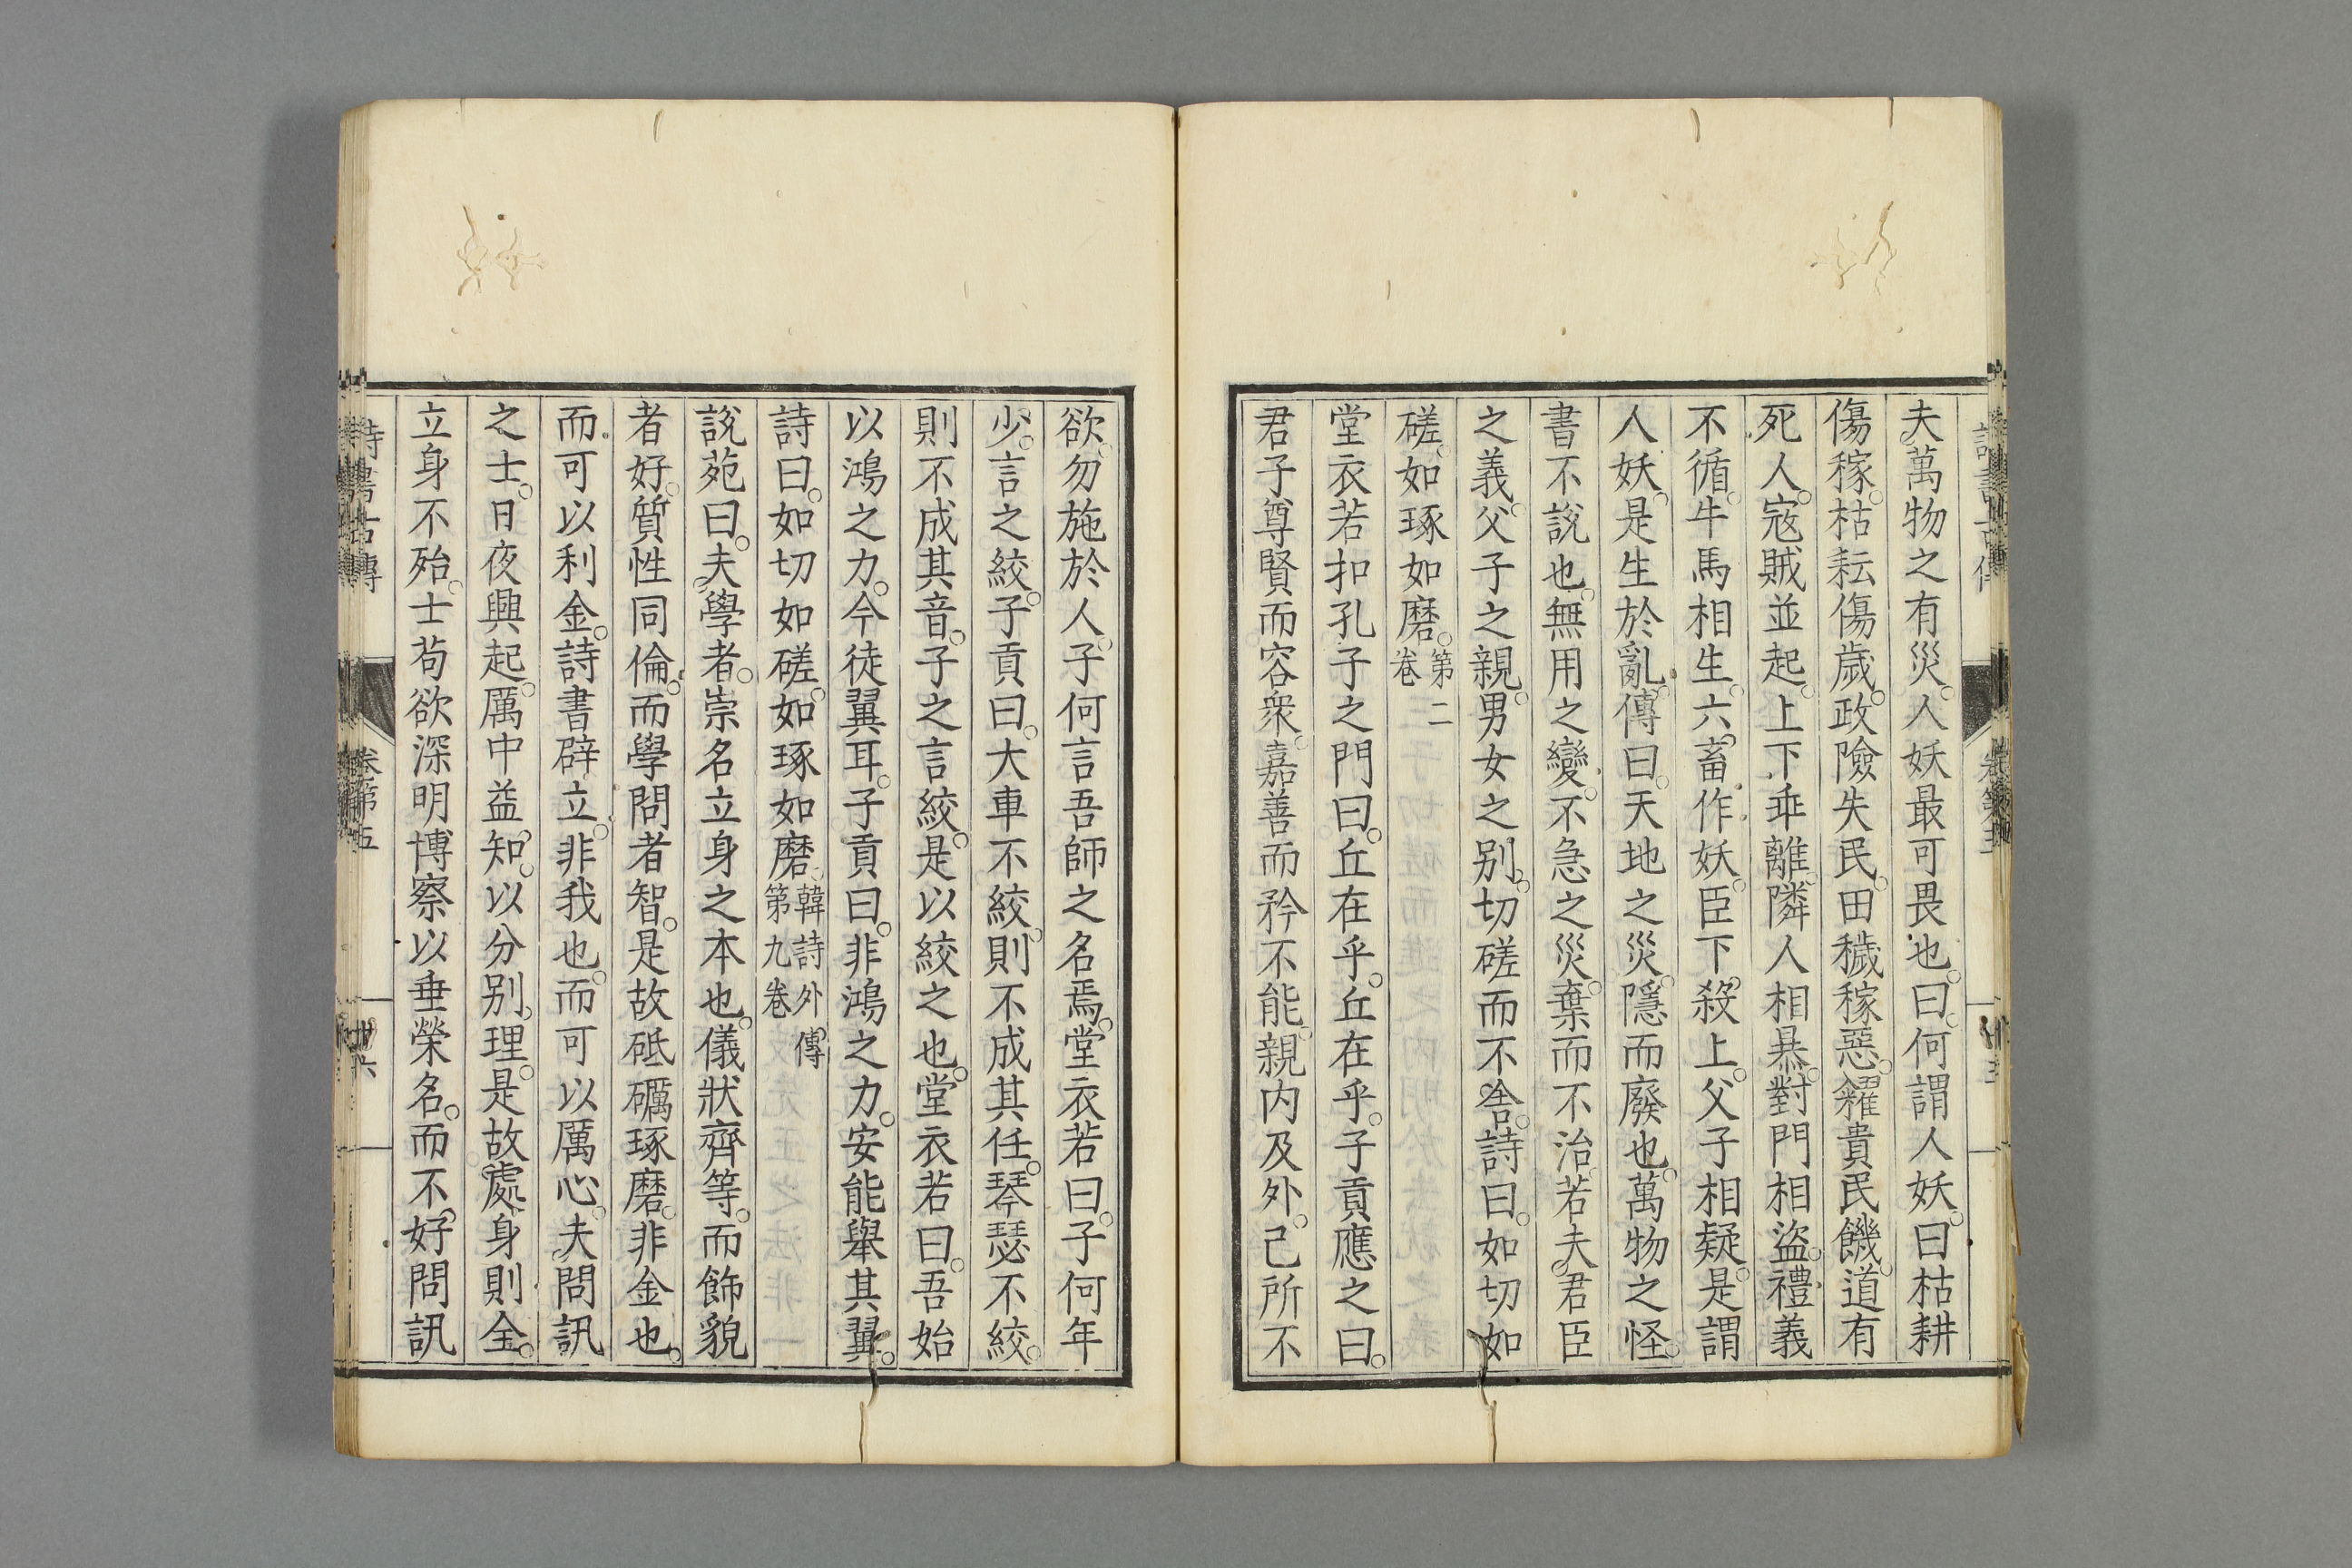 夫萬物之有災。人妖最可畏也。曰。何謂人妖。曰枯耕
傷稼。枯耘傷歲。政險失民。田穢稼惡。糴貴民饑。道有
死人。寇賊並起。上下乖離。隣人相暴。對門相盜。禮義
不循。牛馬相生。六畜作妖。臣下殺上。父子相疑。是謂
人妖。是生於亂。傳曰。天地之災。隱而廢也。萬物之怪。
書不說也。無用之變。不急之災。棄而不治。若夫君臣
之義。父子之親。男女之別。切磋而不舍。詩曰。如切如
磋。如琢如磨。第二卷
堂衣若扣孔子之門曰。丘在乎。丘在乎。子貢應之曰。
君子尊賢而容衆。嘉善而矜不能。親内及外。己所不
欲。勿施於人。子何言吾師之名焉。堂衣若曰。子何年
少。言之絞。子貢曰。大車不絞。則不成其任。琴瑟不絞。
則不成其音。子之言絞。是以絞之也。堂衣若曰。吾始
以鴻之力。今徒翼耳。子貢曰。非鴻之力。安能舉其翼。
詩曰。如切如磋。如琢如磨。韓詩外傳第九卷
說苑曰。夫學者。崇名立身之本也。儀狀齊等。而飾貌
者好。質性同倫。而學問者智。是故砥礪琢磨。非金也。
而可以利金。詩書辟立。非我也。而可以厲心。夫問訊
之士。日夜興起。厲中益知。以分別理。是故處身則全。
立身不殆。士苟欲深明博察以垂榮名。而不好問訊
詩書古傳
卷第五